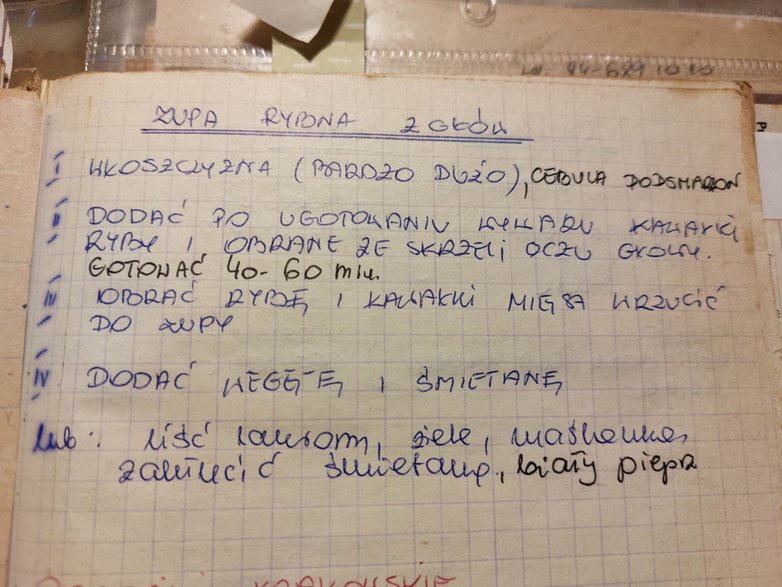 Tel. 24-679 10 10
ZUPA RYBNA Z GŁÓW
I WŁOSZCZYZNA (BARDZO DUŻO), CEBULA PODSMAŻON
II DODAĆ PO UGOTOWANIU WYWARU KAWAŁKI
RYBY I OBRANE ZE SKRZELI OCZU GŁOWY.
GOTOWAĆ 40-60 min.
III OBRAĆ RYBĘ I KAWAŁKI MIĘSA WRZUCIĆ
DO ZUPY
IV DODAĆ WEGETĘ I ŚMIETANĘ
lub: liść laurow, ziele, gałka
zakłucić śmietaną, biały pieprz
KRAKOWSKIE